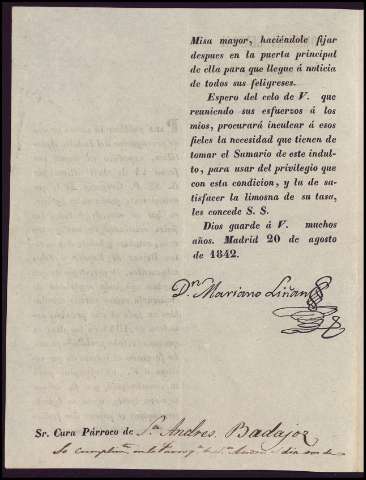 Misa mayor, haciéndole fijar
despues en la puerta principal
de ella para que llegue á noticia
de todos sus feligreses.
Espero del celo de V. que
reuniendo sus esfuerzos á los
mios, procurará inculcar á esos
fieles la necesidad que tienen de
tomar el Sumario de este indul-
to, para usar del privilegio que
con esta condicion, y la de sa-
tisfacer la limosna de su tasa,
les concede S. S.
Dios guarde á V. muchos
años. Madrid 20 de agosto
de 1842.
Dn. Mariano Liñan
Sr. Cura Párroco de Sn. Andres. Badajoz
Se cumplim